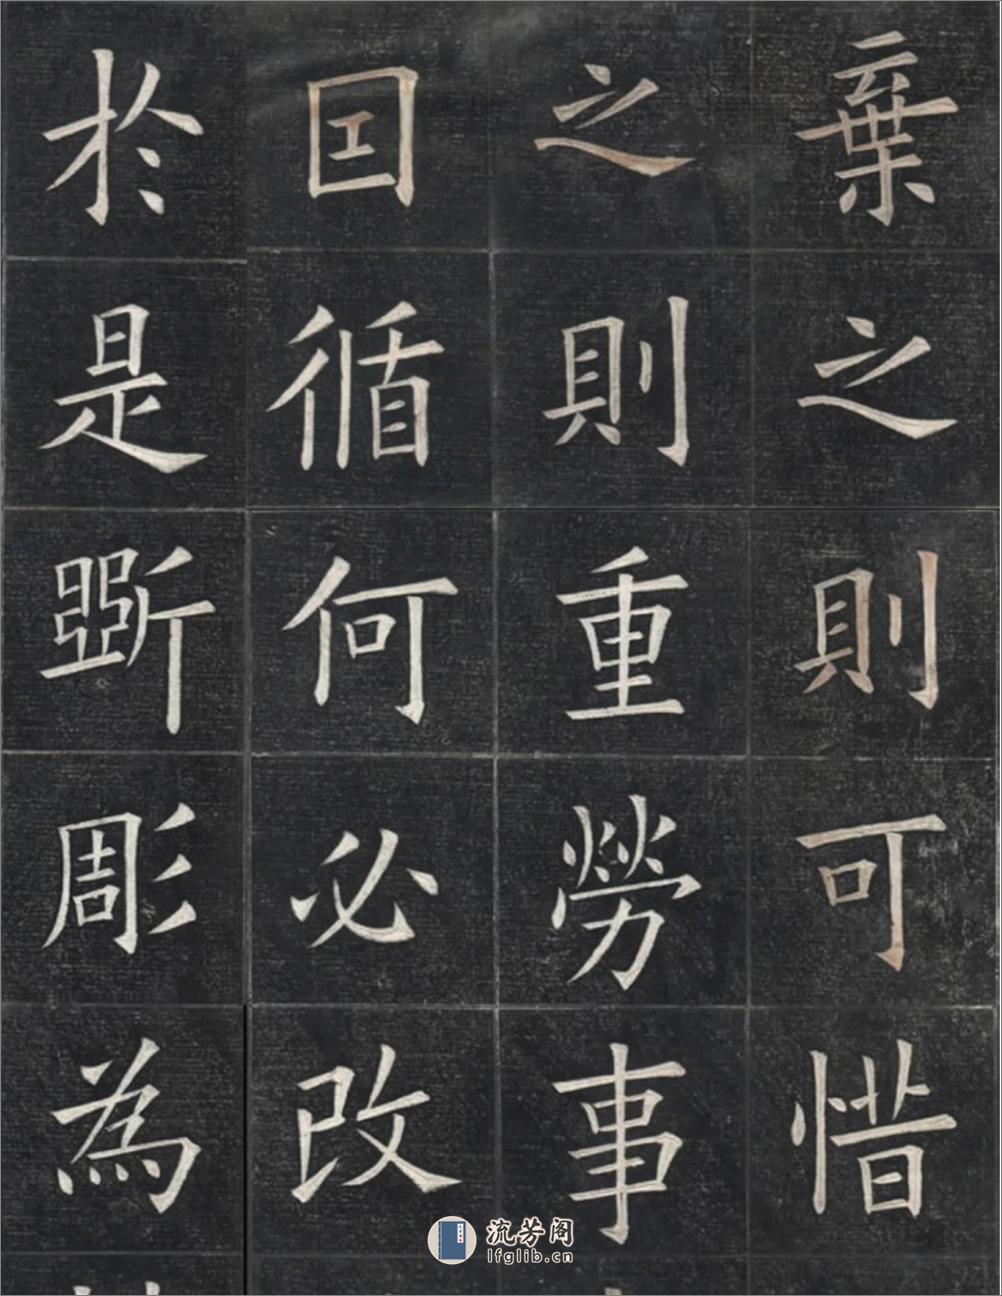 棄之則可惜
之則重勞事
囙循何必改
於是斲彫為
流芳阁
lfglib.cn